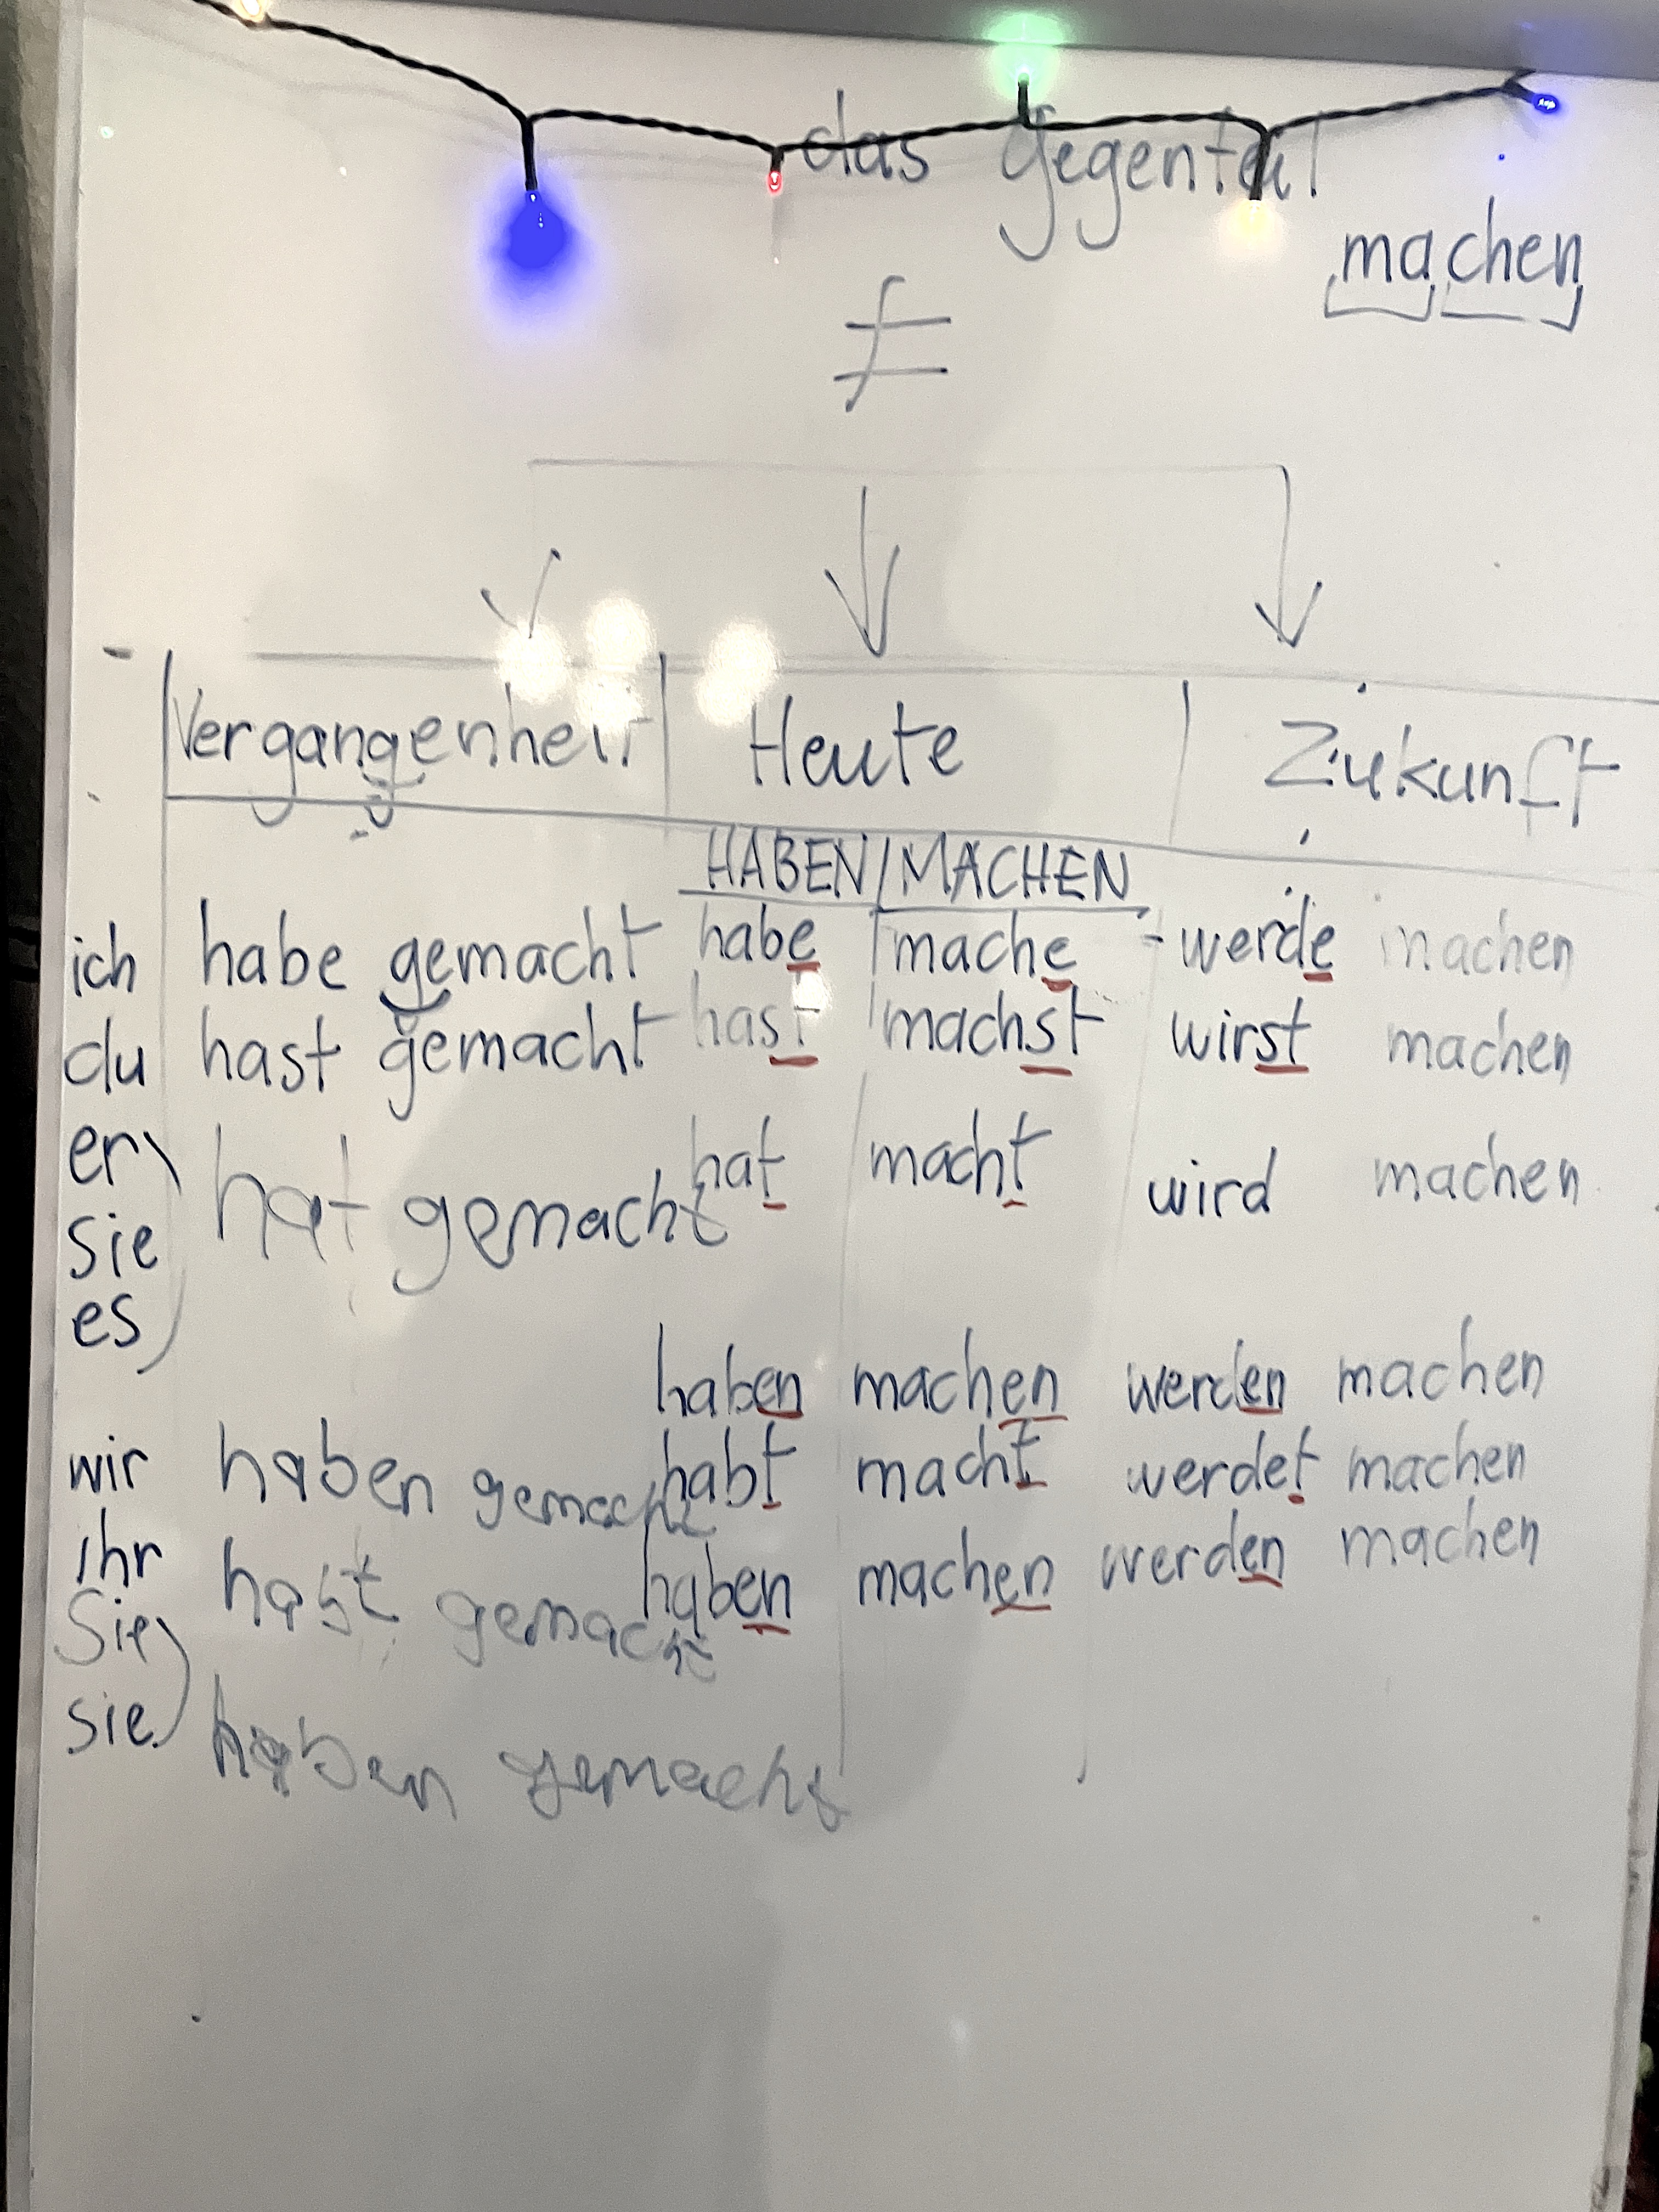 das Gegenteil
machen
≠
Vergangenheit Heute Zukunft
HABEN/MACHEN
ich habe gemacht habe mache werde machen
du hast gemacht hast machst wirst machen
er hat gemacht hat macht wird machen
sie
es
haben machen werden machen
wir haben gemacht habt macht werdet machen
ihr habt gemacht haben machen werden machen
Sie
sie haben gemacht